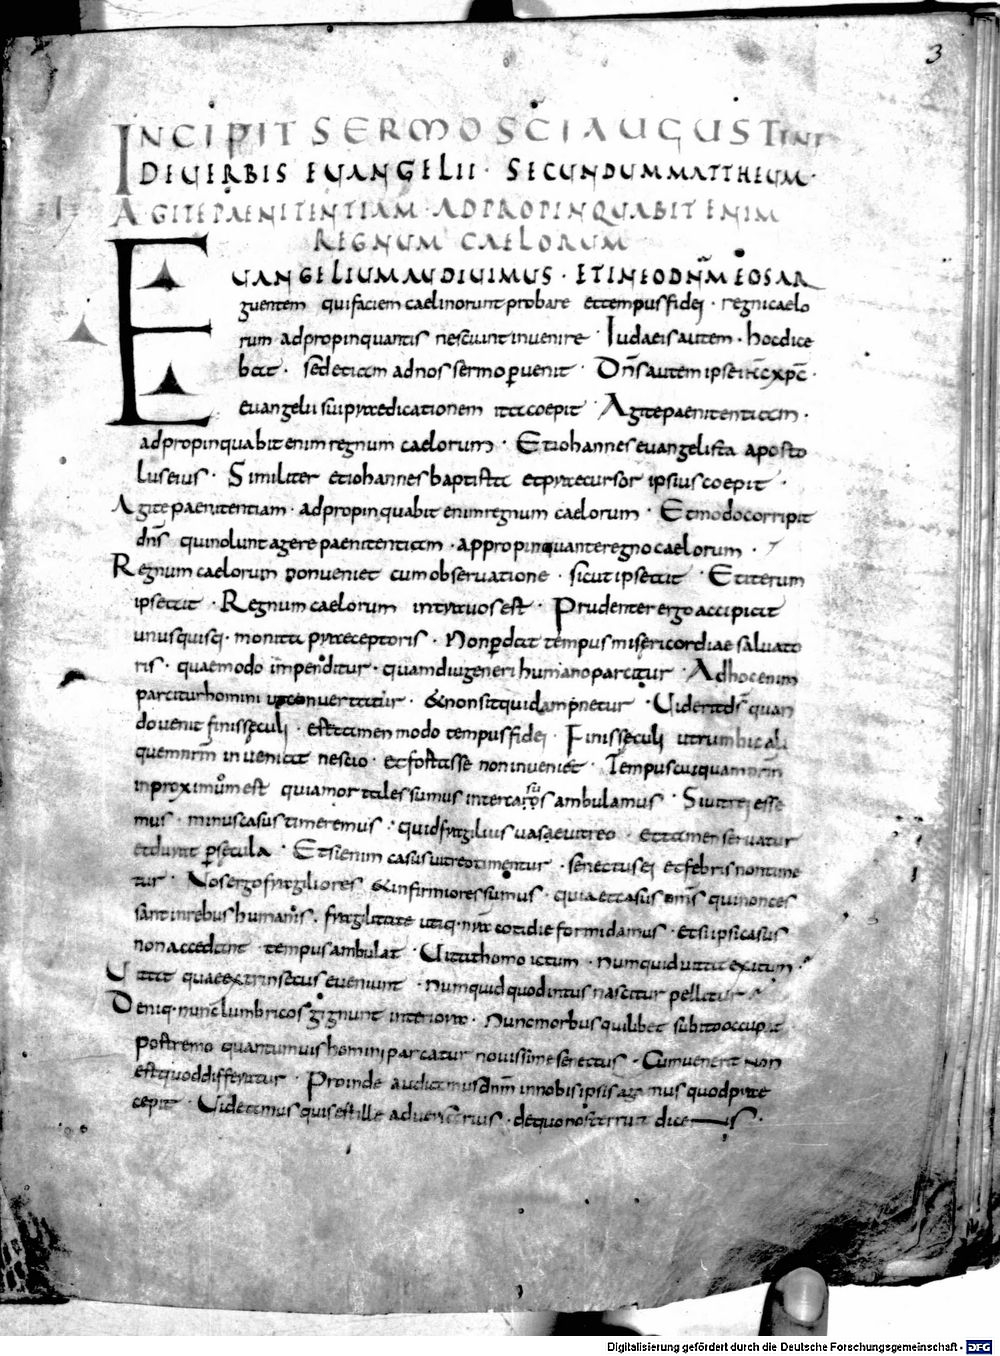 3
INCIPIT SERMO SCI AUGUSTINI
DE UERBIS EUANGELII · SECUNDUM MATTHEUM ·
AGITE PAENITENTIAM · ADPROPINQUABIT ENIM
REGNUM CAELORUM
EUANGELIUM AUDIUIMUS · ET IN EO DNM EOS AR
guentem qui faciem caeli norunt probare et tempus fidei · regni caelo
rum adpropinquantis nesciunt inuenire · Iudaeis autem · hoc dice
bat · sed etiam ad nos sermo puenit · Dns autem ipse ihc xpc ·
euangelii sui praedicationem ita coepit · Agite paenitentiam ·
adpropinquabit enim regnum caelorum · Et iohannes euangelista aposto
lus eius · Similiter et iohannes baptista et praecursor ipsius coepit ·
Agite paenitentiam · adpropinquabit enim regnum caelorum · Et modo corripit
dns qui nolunt agere paenitentiam · appropinquante regno caelorum ·
Regnum caelorum non ueniet cum obseruatione · sicut ipse ait · Et iterum
ipse ait · Regnum caelorum intra uos est · Prudenter ergo accipiat
unusquisq · monita praeceptoris · Non pdat tempus misericordiae saluato
ris · quae modo impenditur · quamdiu generi humano parcitur · Ad hoc enim
parcitur homini ut conuertatur · & non sit qui dampnetur · Uiderit ds quan
do uenit finis seculi · est tamen modo tempus fidei · Finis seculi utrum hic ali
quem nrm inueniat nescio · et fortasse non inueniet · Tempus cuiquam nrm
in proximum est quia mortales sumus inter casus ambulamus · Si uitrei esse
mus · minus casus timeremus · quid fragilius uasae uitreo · et tamen seruatur
et durat p secula · Etsi enim casus uitreo timentur · senectus ei et febris non time
tur · Nos ergo fragiliores & infirmiores sumus · quia et casus oms qui non ces
sant in rebus humanis · fragilitate utiq · nra cotidie formidamus · et si ipsi casus
non accedant · tempus ambulat · Uitat homo ictum · numquid uitat exitum ·
Uitat quae extrinsecus eueniunt · numquid quod intus nascitur pellitur
Deniq · nunc lumbricos gignunt interiora · nunc morbus quilibet subito occupat
postremo quantumuis homini parcatur nouissime senectus · Cum uenerit non
est quod differatur · Proinde audiamus dnm in nobis ipsis agamus quod prae
cepit · Uideamus quis est ille aduersarius · de quo nos terruit dicens ·
Digitalisierung gefördert durch die Deutsche Forschungsgemeinschaft - DFG